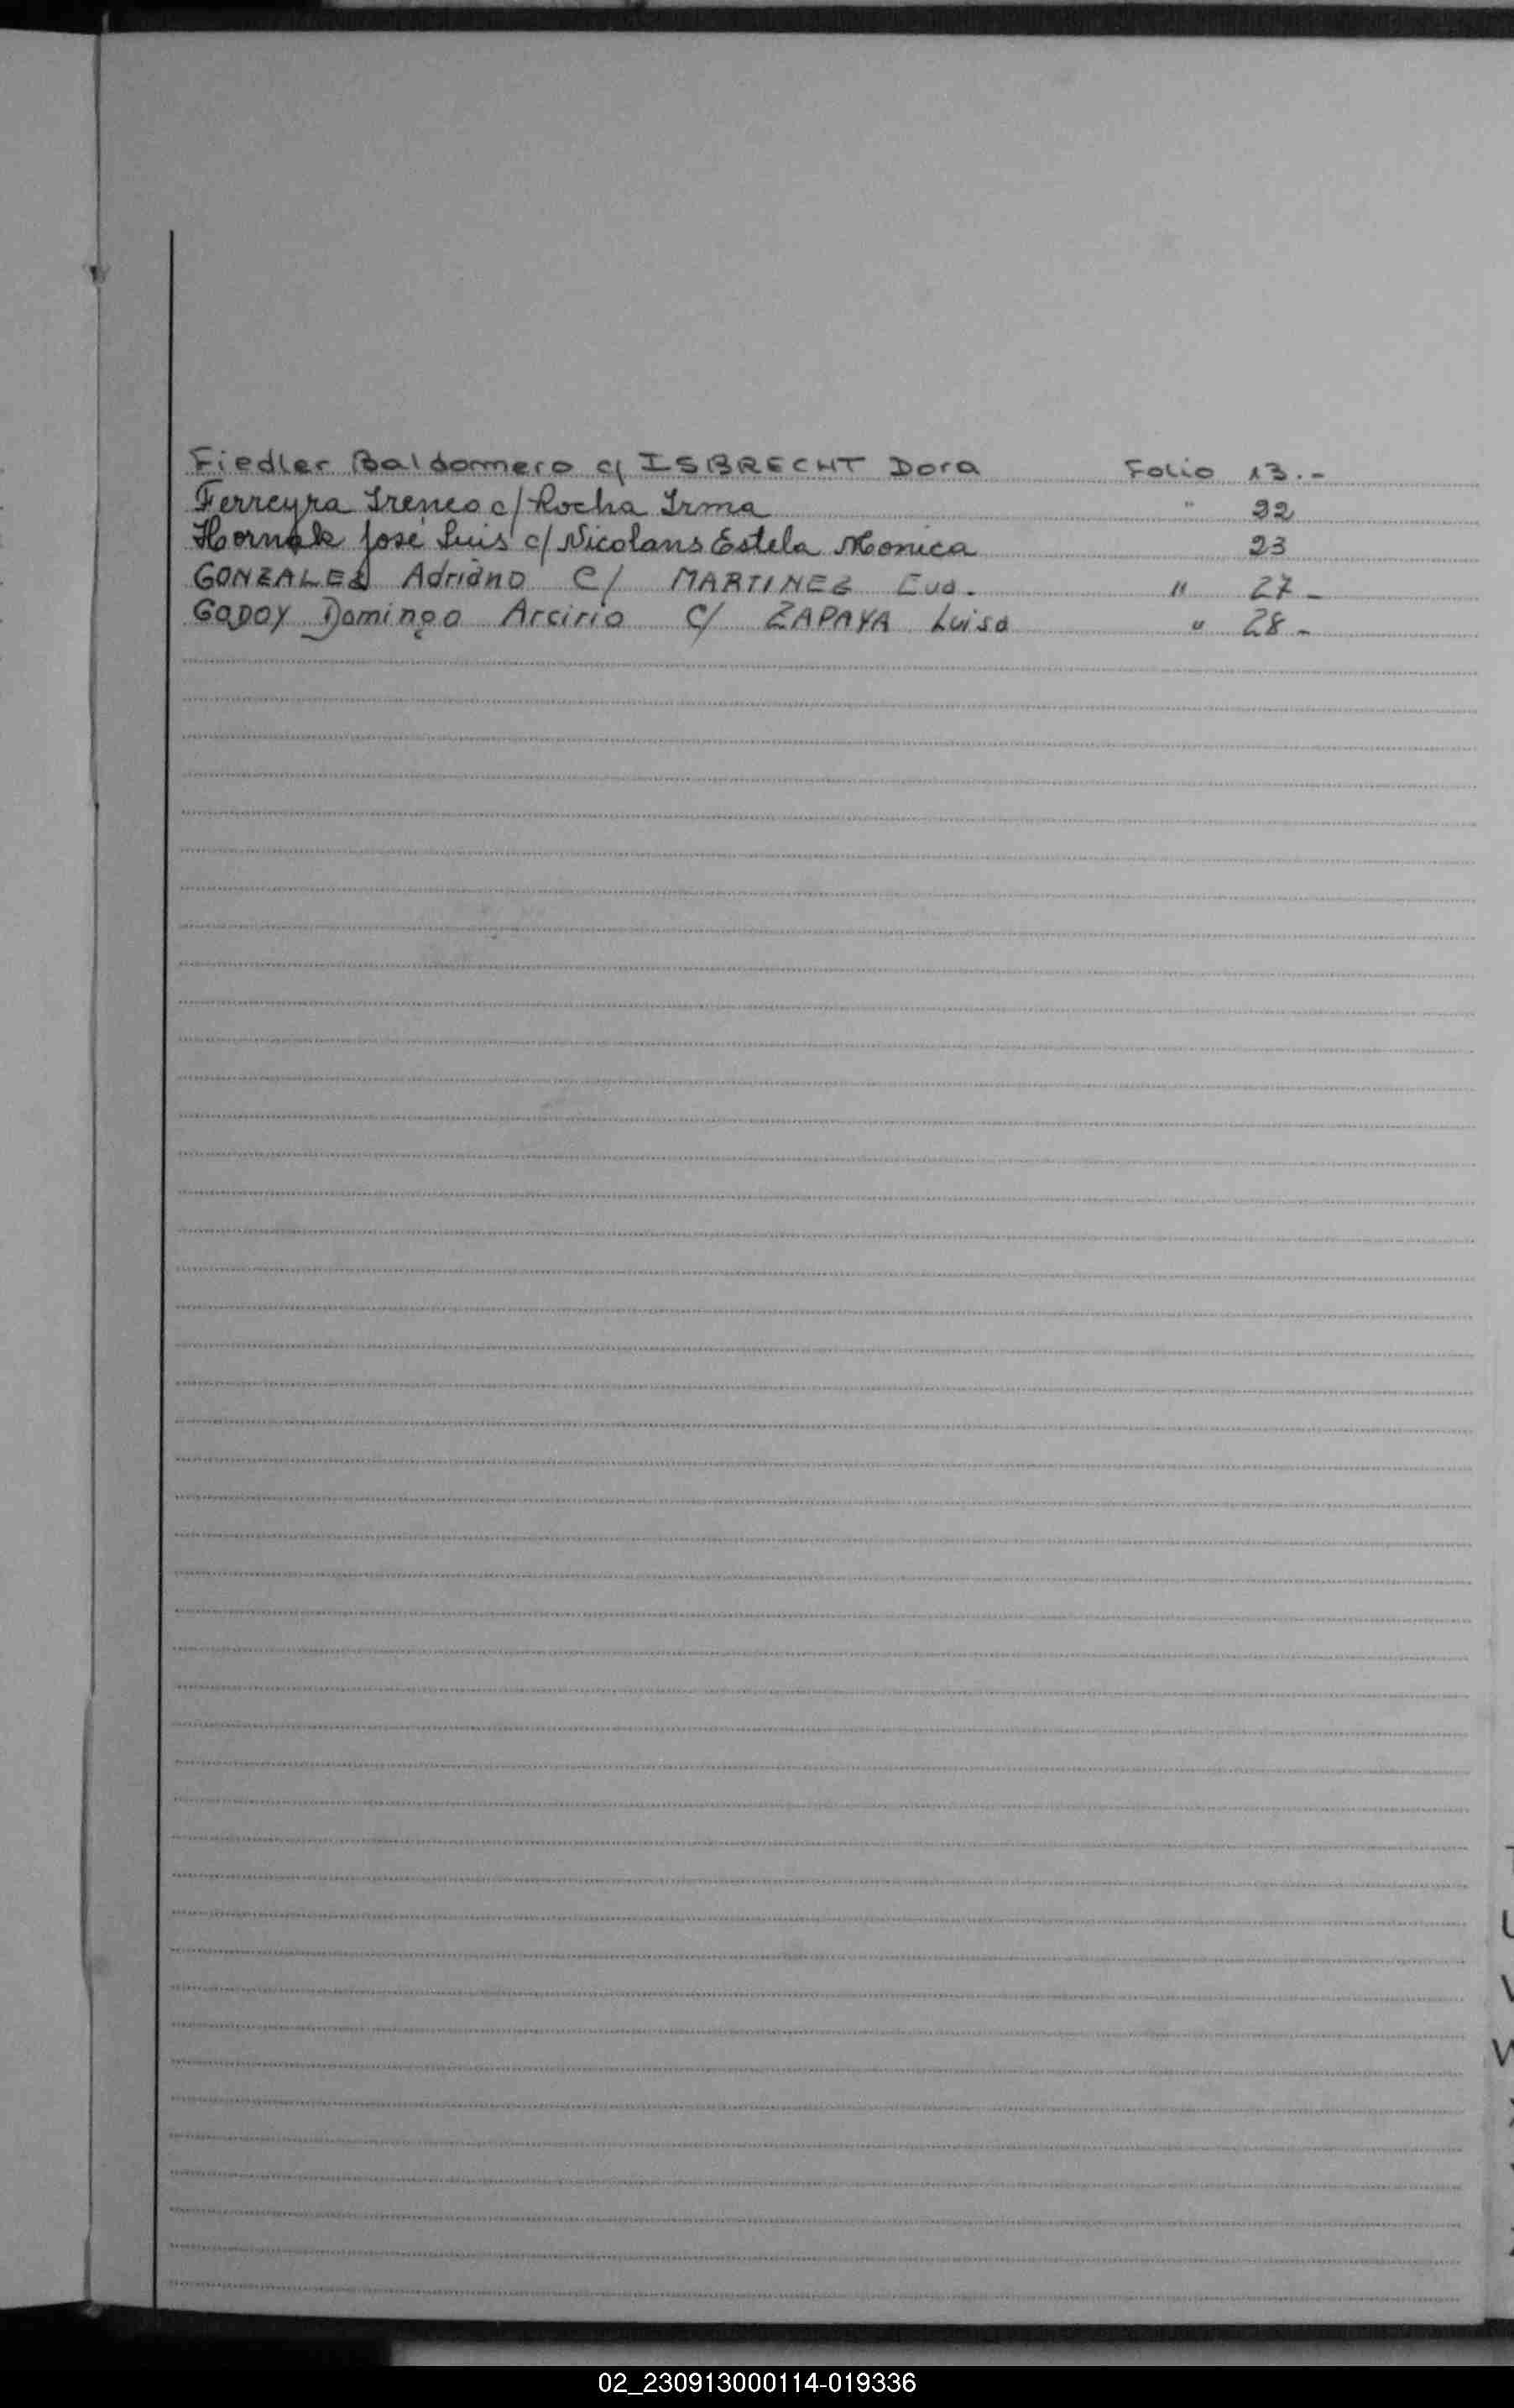 Fiedler Baldomero c/ ISBRECHT Dora Folio 13.-
Ferreyra Ireneo c/ Rocha Irma " 22
Hornak José Luis c/ Nicolans Estela Monica 23
GONZALEZ Adriano C/ MARTINEZ Eva. " 27-
GODOY Domingo Arcirio C/ ZAPAYA Luisa " 28-
U
V
W
02_230913000114-019336